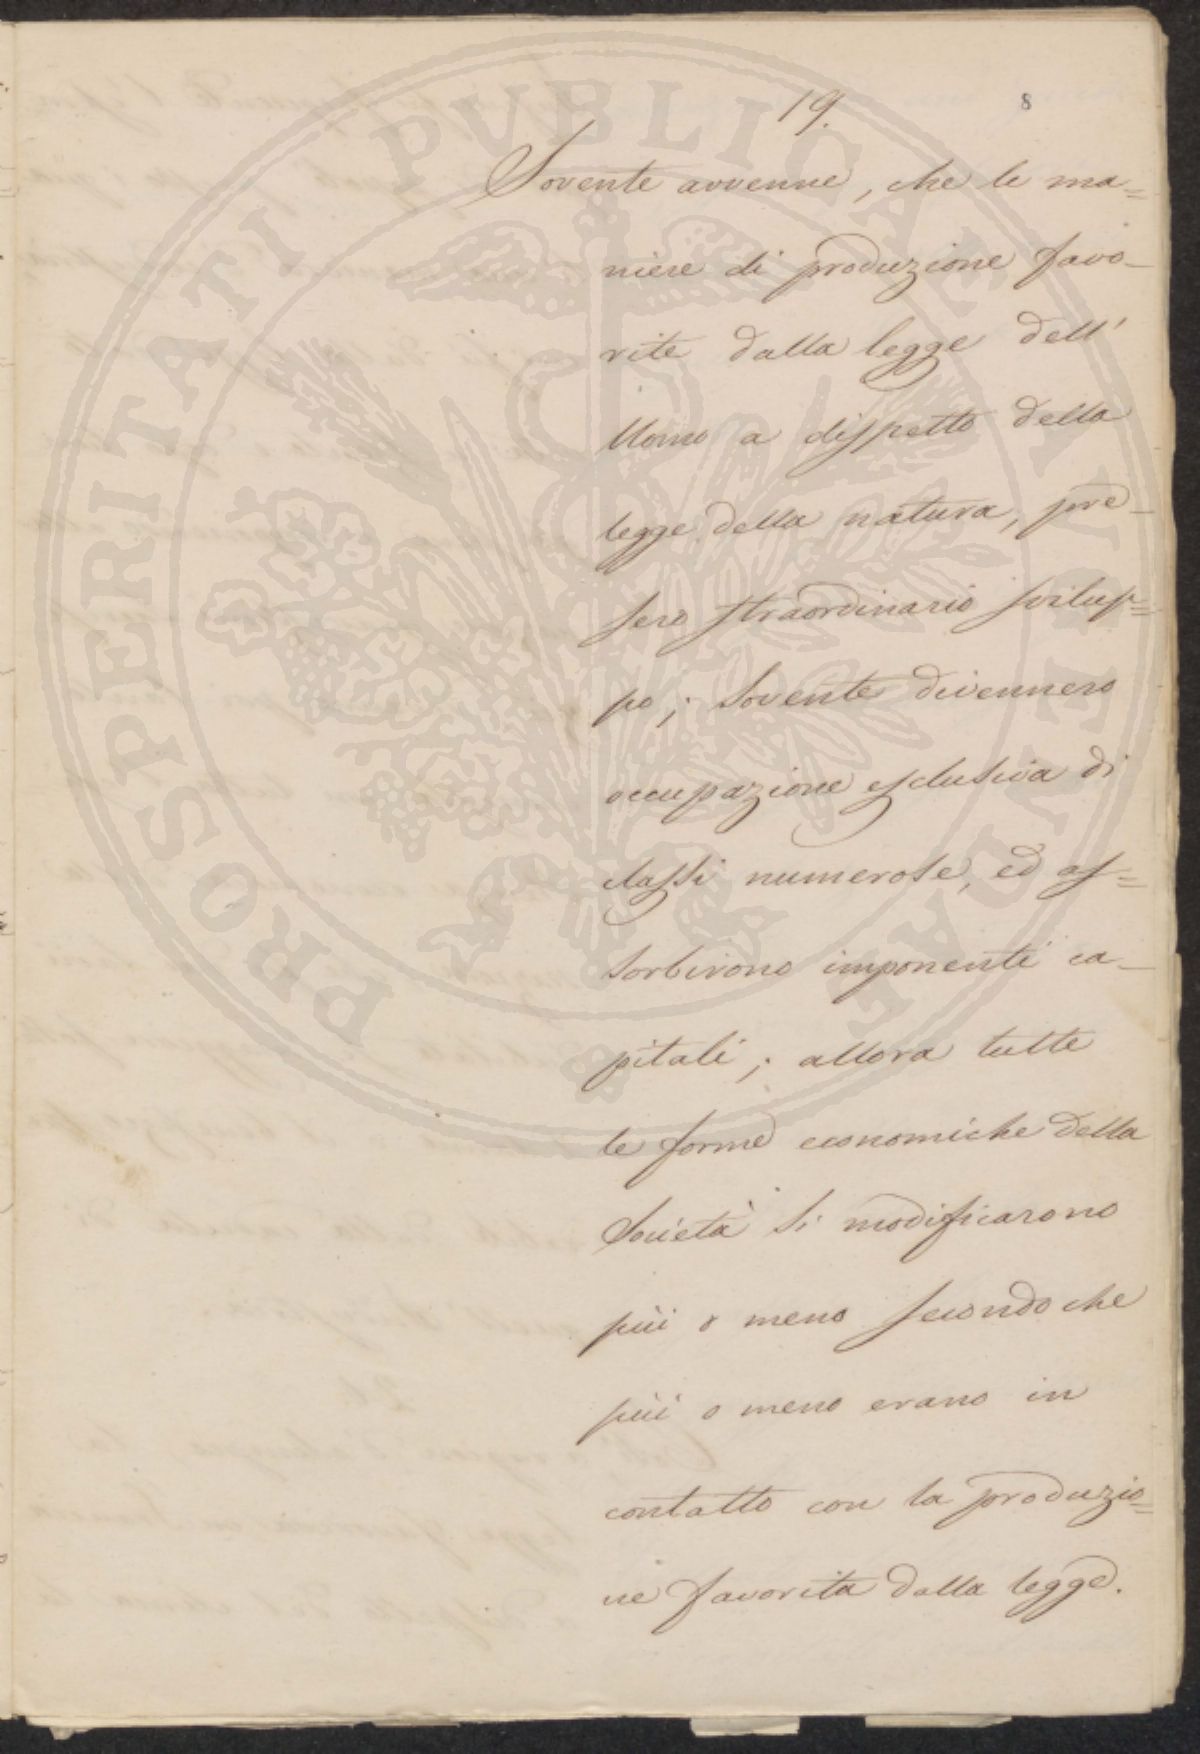 19.
8
Sovente avvenne, che le ma=
niere di produzione favo-
rite dalla legge dell'
Uomo a dispetto della
legge della natura, pre-
sero straordinario svilup=
po; Sovente divennero
occupazione esclusiva di
classi numerose, ed as=
sorbirono imponenti ca-
pitali; allora tutte
le forme economiche della
Società si modificarono
più o meno secondo che
più o meno erano in
contatto con la produzio=
ne favorita dalla legge.
PROSPERITATI PUBLICAE AUGENDAE